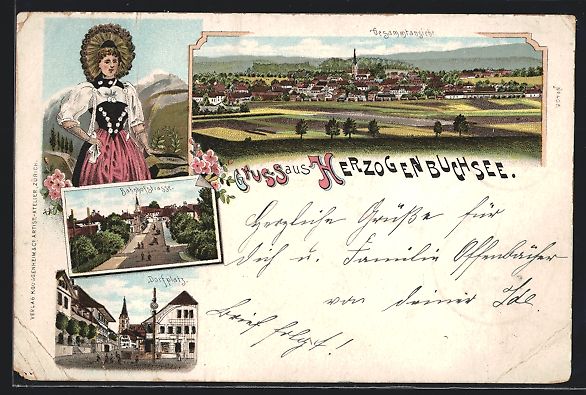 Gesammtansicht
GRUSS AUS HERZOGENBUCHSEE.
Bahnhofstrasse.
Dorfplatz
VERLAG H. GUGGENHEIM & Co. ARTIST-ATELIER, ZÜRICH.
Herzliche Grüße für
dich u. Familie Offenbächer
von deiner Ida
Brief folgt!